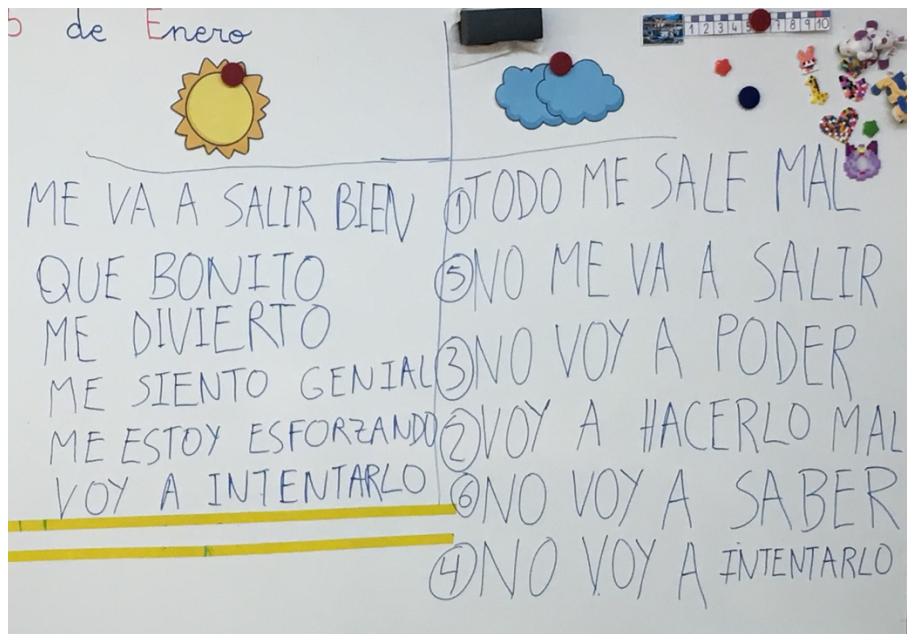 5 de Enero
1 2 3 4 5 7 8 9 10
ME VA A SALIR BIEN
QUE BONITO
ME DIVIERTO
ME SIENTO GENIAL
ME ESTOY ESFORZANDO
VOY A INTENTARLO
① TODO ME SALE MAL
⑤ NO ME VA A SALIR
③ NO VOY A PODER
② VOY A HACERLO MAL
⑥ NO VOY A SABER
④ NO VOY A INTENTARLO